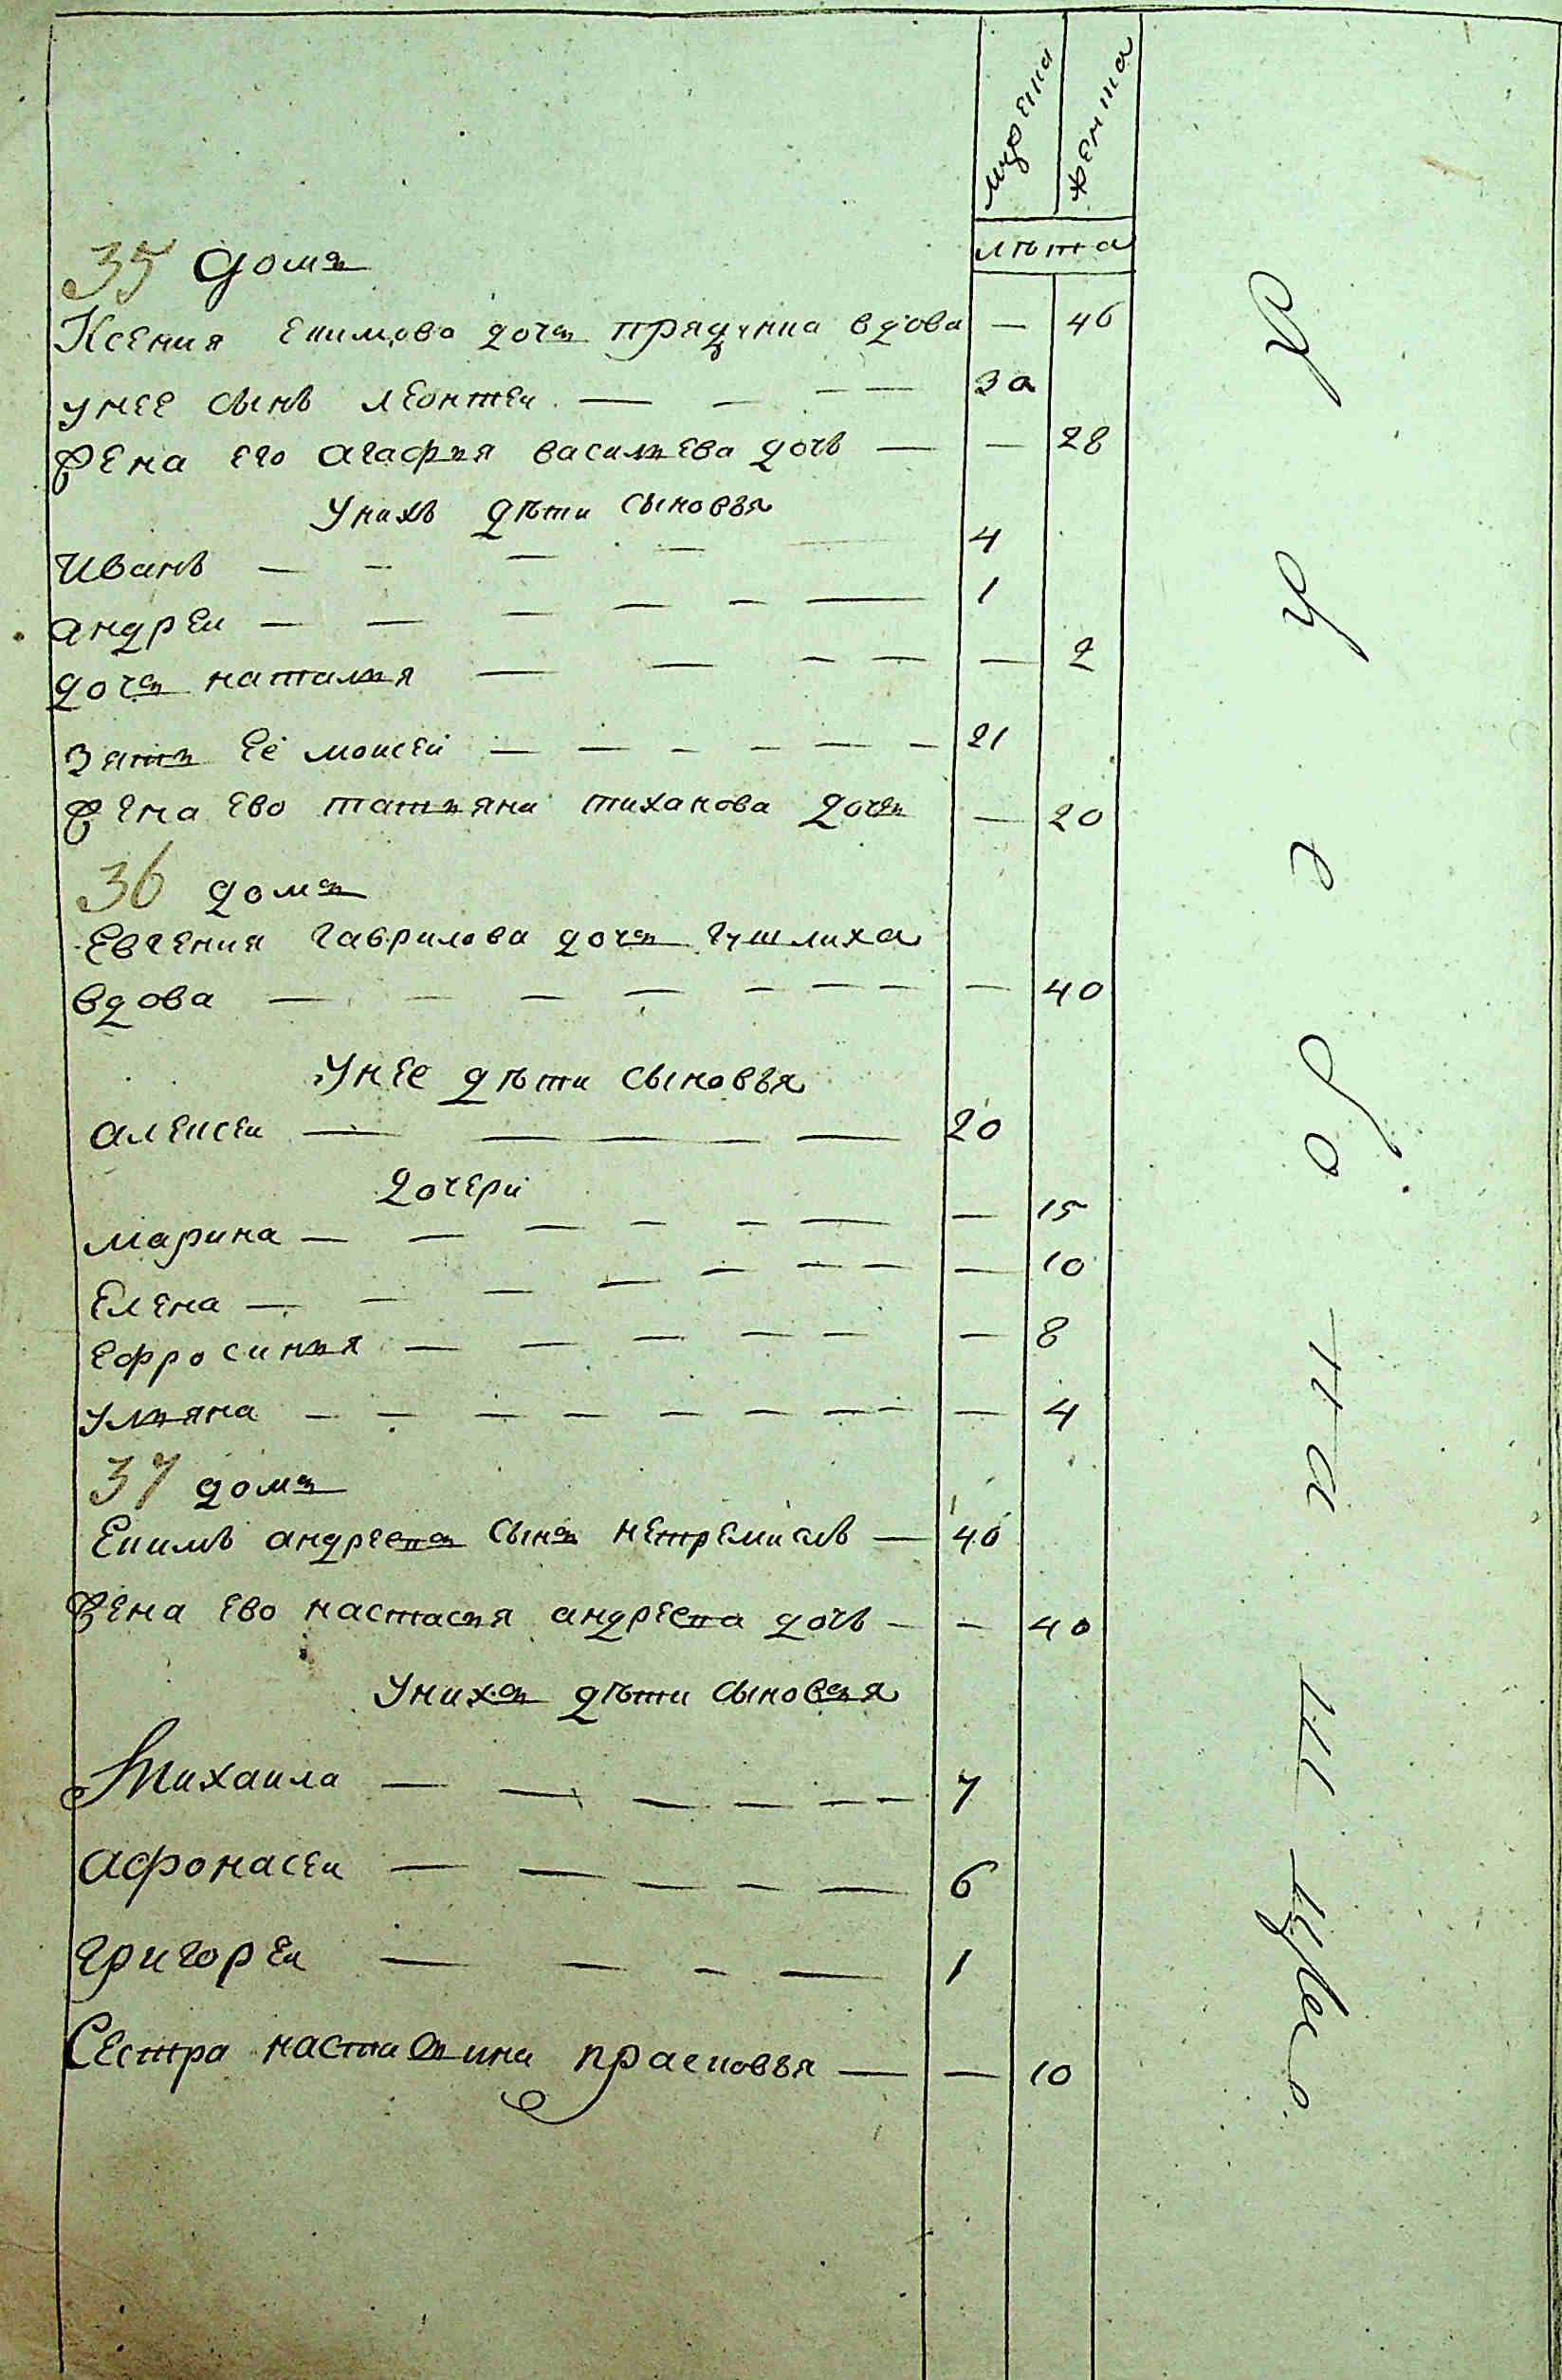 мужеска женска
лѣта
35 домъ
Ксения Екимова дочъ вдова — 46
унее сынъ леонтеи — — — 30
жена его агафья васильева дочь — — 28
Унихъ дѣти сыновья
Иванъ — — — — — 4
андреи — — — — — — 1
дочъ наталья — — — — — 2
зять Её моисеи — — — — — — 21
жена Ево татьяна тиханова дочь — 20
36 домъ
Евгения гаврилова дочъ гушлиха
вдова — — — — — — — — 40
Унее дѣти сыновья
алексеи — — — — — 20
дочери
марина — — — — — — — 15
Елена — — — — — — — — 10
ефросинья — — — — — — 8
ульяна — — — — — — — — — 4
37 домъ
Екимъ андреевъ сынъ — 40
жена Ево настасья андреева дочь — — 40
Унихъ дѣти сыновья
Михаила — — — — — — 7
афонасеи — — — — — 6
григореи — — — — 1
Сестра прасковья — — 10